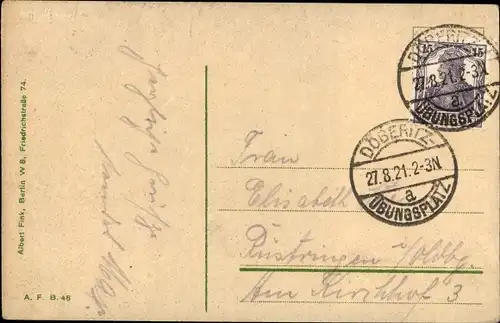 Albert Fink, Berlin W 8, Friedrichstraße 74.
A. F. B. 48
Herzliche Grüße
15 15
DÖBERITZ
27.8.21.2-3N
a
ÜBUNGSPLATZ
DÖBERITZ
27.8.21.2-3N
a
ÜBUNGSPLATZ
Frau
Elisabeth
Rüstringen i/Oldbg.
Am Kirchhof 3